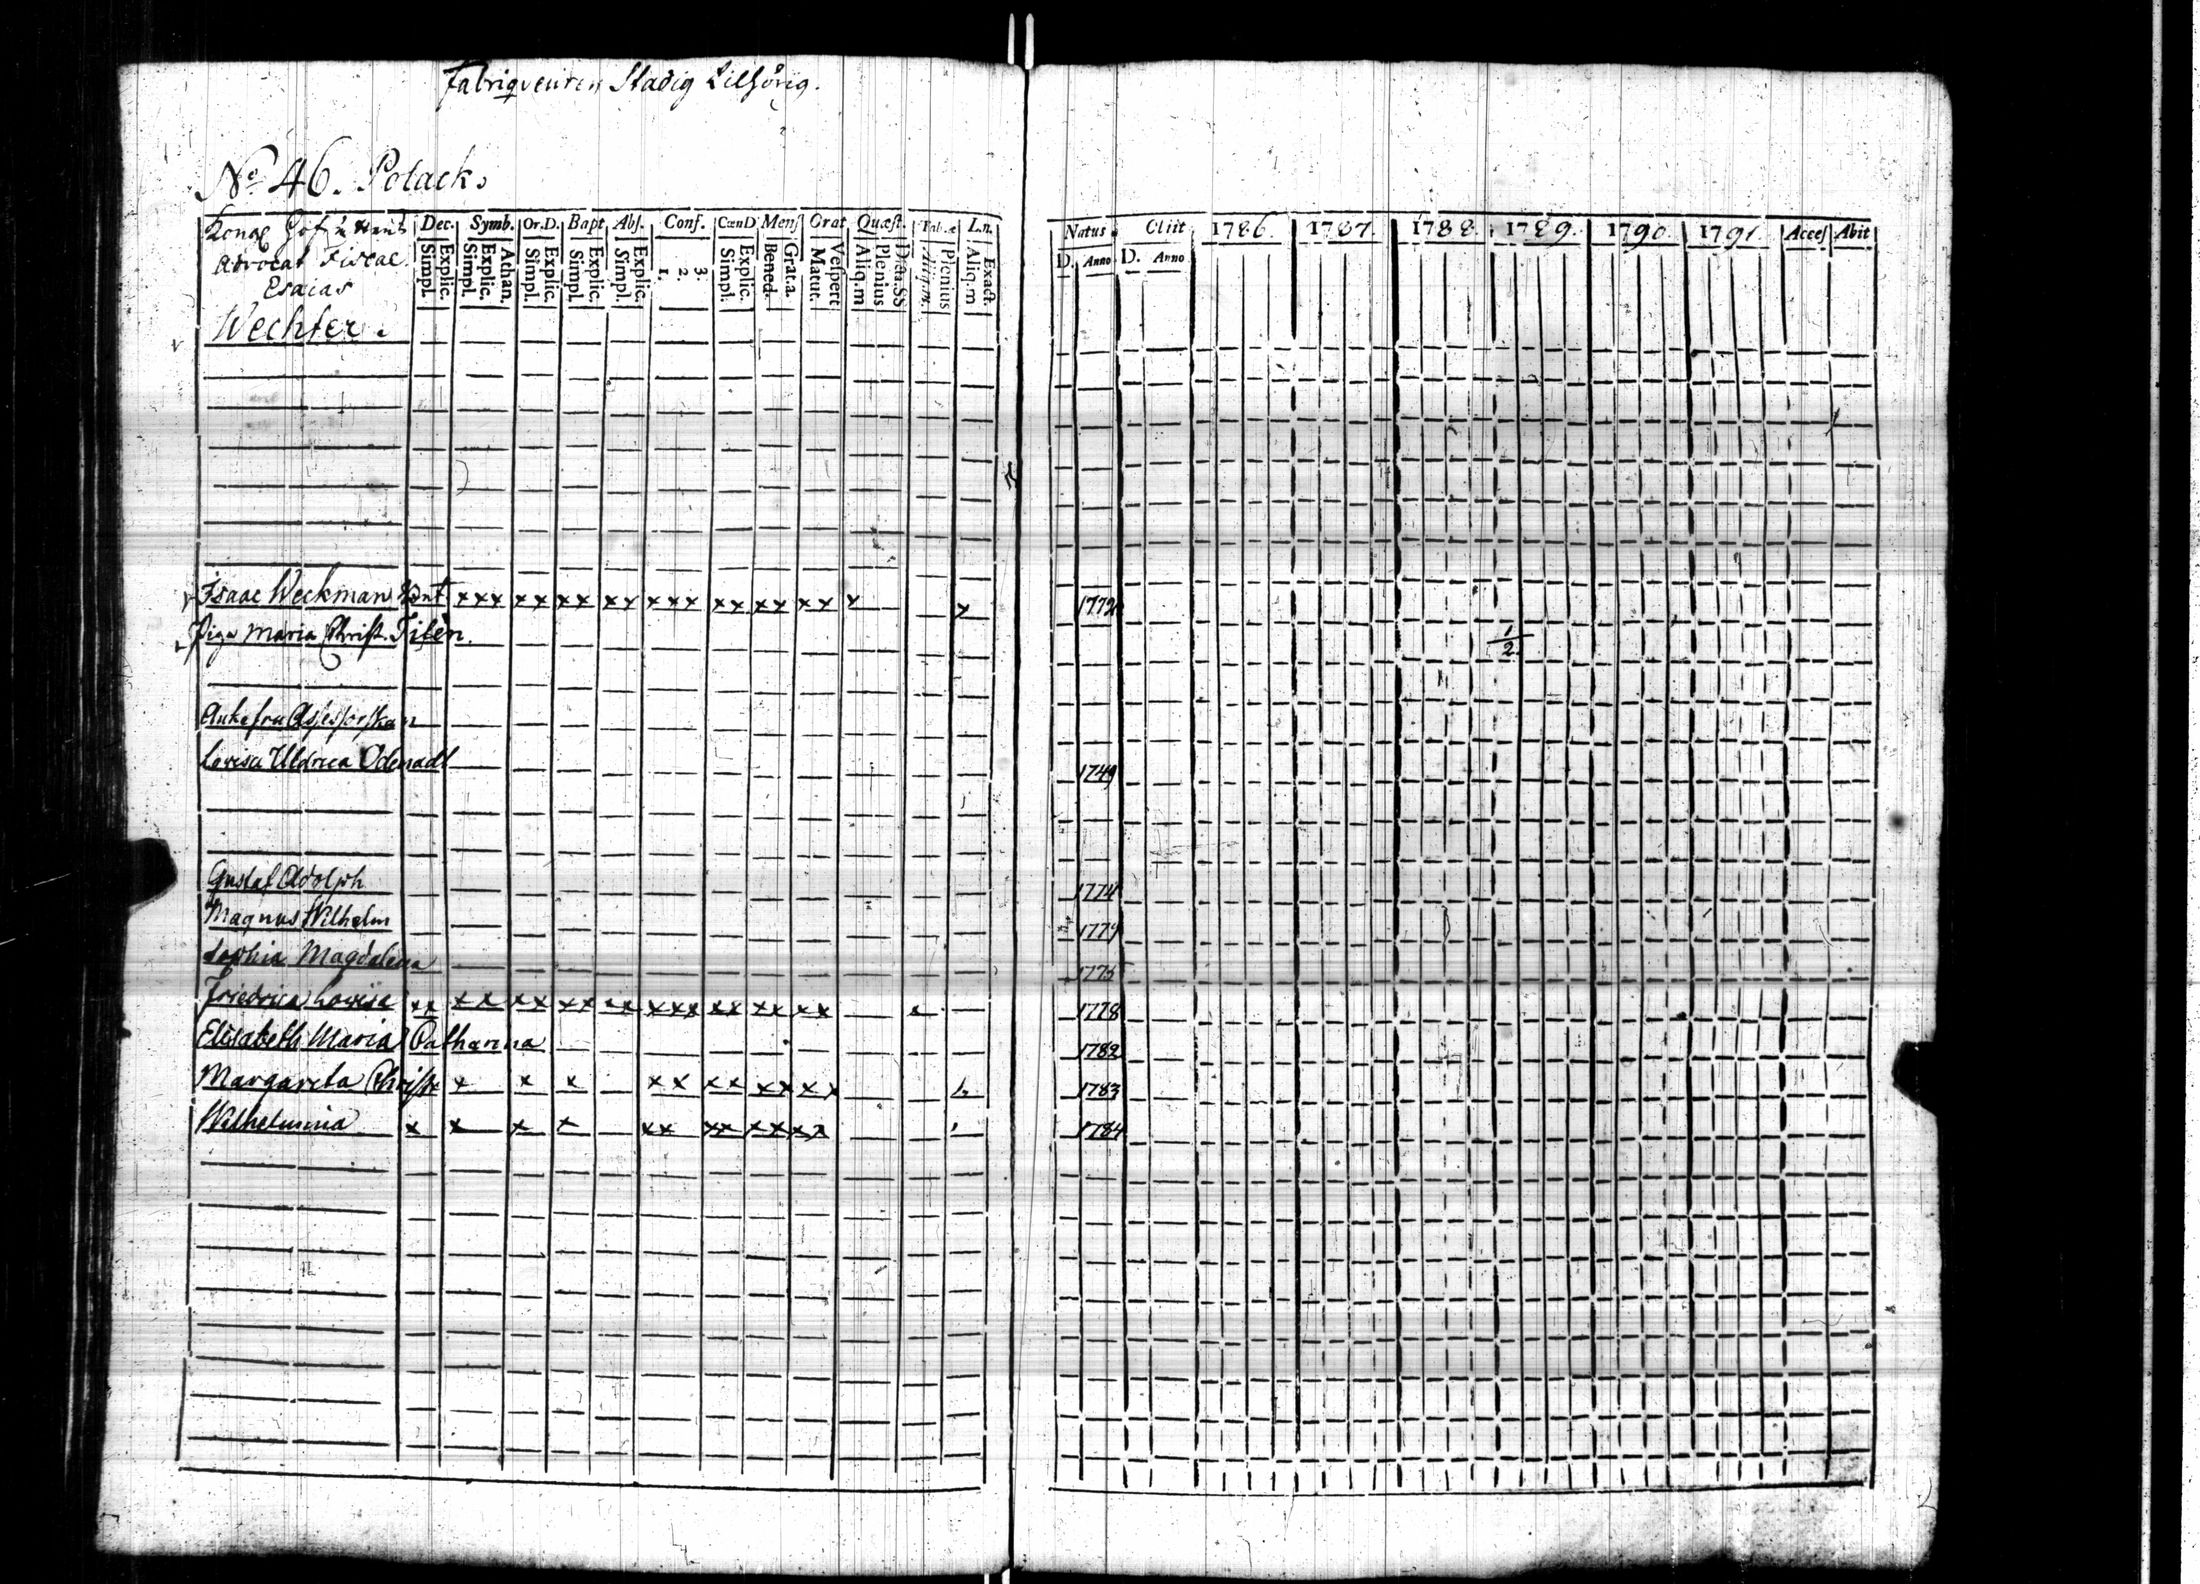 Fabriqveuren Stadig Tilhörig.
No 46. Polacks
Kongl Hof
Advocat Fiscal
Esaias
Wechter.
Dec. Symb. Or.D. Bapt Abs. Conf. CœnD Mens Grat Quæst. Tab.æ L.n.
Explic. Simpl. Athan. Explic. Simpl. Explic. Simpl. Explic. Simpl. Explic. Simpl. 3. 2. 1. Explic. Simpl. Grat.a. Bened. Vespert Matut. D.ct.SS Plenius Aliq.m Plenius Aliq.m Exact. Aliq.m
Natus Cliit 1786. 1787. 1788. 1789. 1790. 1791. Acces Abit
D. Anno D. Anno
Isaac Weckman x x x x x x x x x x x x x x x x x x x x x 1772
Piga Maria Christ. Tilén. 1/2
Enkefru Assessorskan
Lovisa Uldrica Odenadl 1749
Gustaf Adolph 1774
Magnus Wilhelm 1779
Sophia Magdalena 1775
Friedrica Lovisa x x x x x x x x x x x x x x x x x x x x 1778
Elisabeth Maria Catharina 1782
Margareta Christ x x x x x x x x x x x 1783
Wilhelmina x x x x x x x x x x x x 1784